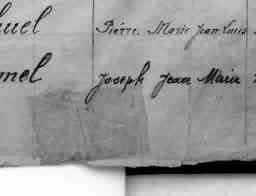 uel Pierre Marie Jean Louis
nel Joseph Jean Marie